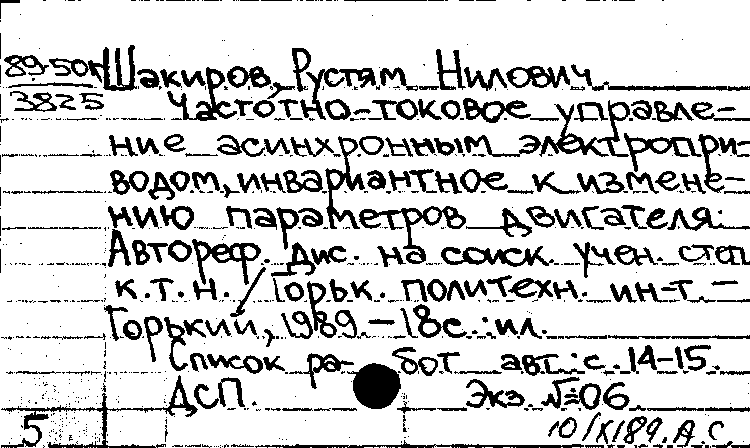 89-50к Шакиров, Рустям Нилович.
3825
Частотно-токовое управле-
ние асинхронным электропри-
водом, инвариантное к измене-
нию параметров двигателя:
Автореф. дис. на соиск. учен. степ
к.т.н. / Горьк. политехн. ин-т. –
Горький, 1989. – 18с.: ил.
Список работ авт.: с. 14-15.
ДСП. Экз. №06
5 10/XI89. А.С.